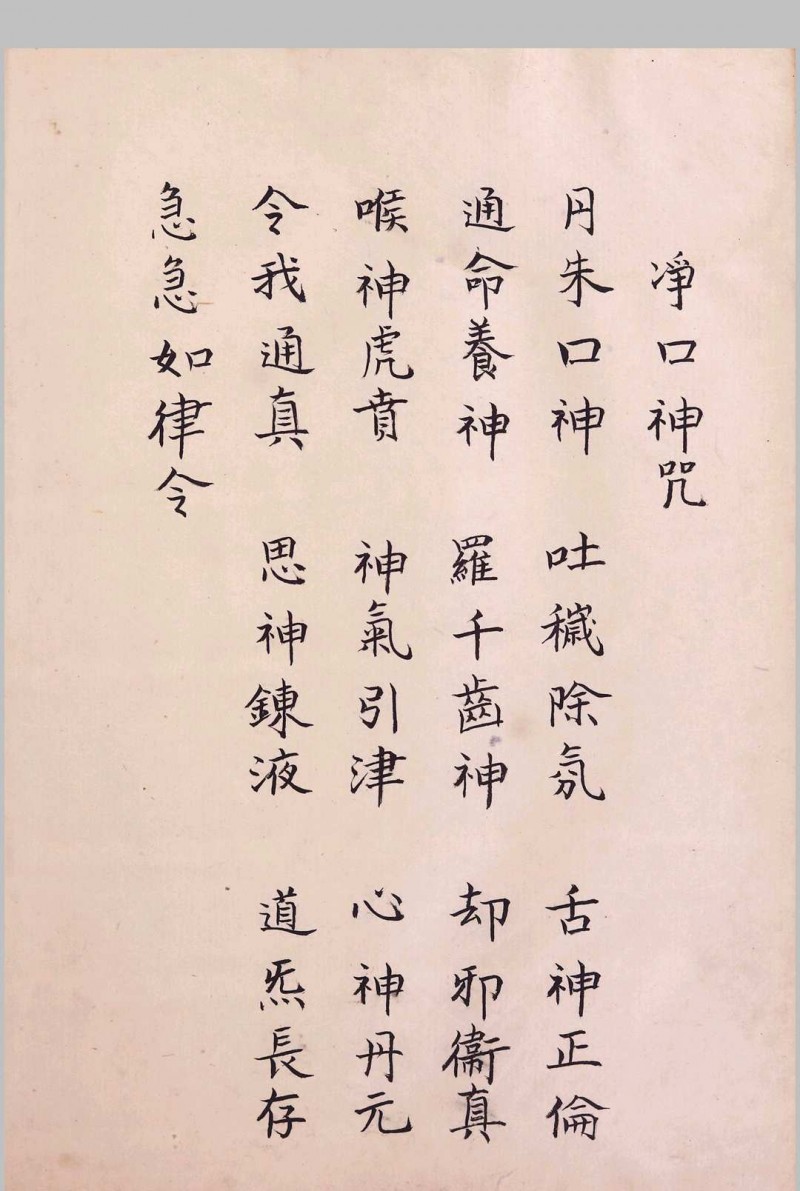 淨口神咒
丹朱口神 吐穢除氛 舌神正倫
通命養神 羅千齒神 却邪衞真
喉神虎賁 神氣引津 心神丹元
令我通真 思神鍊液 道炁長存
急急如律令